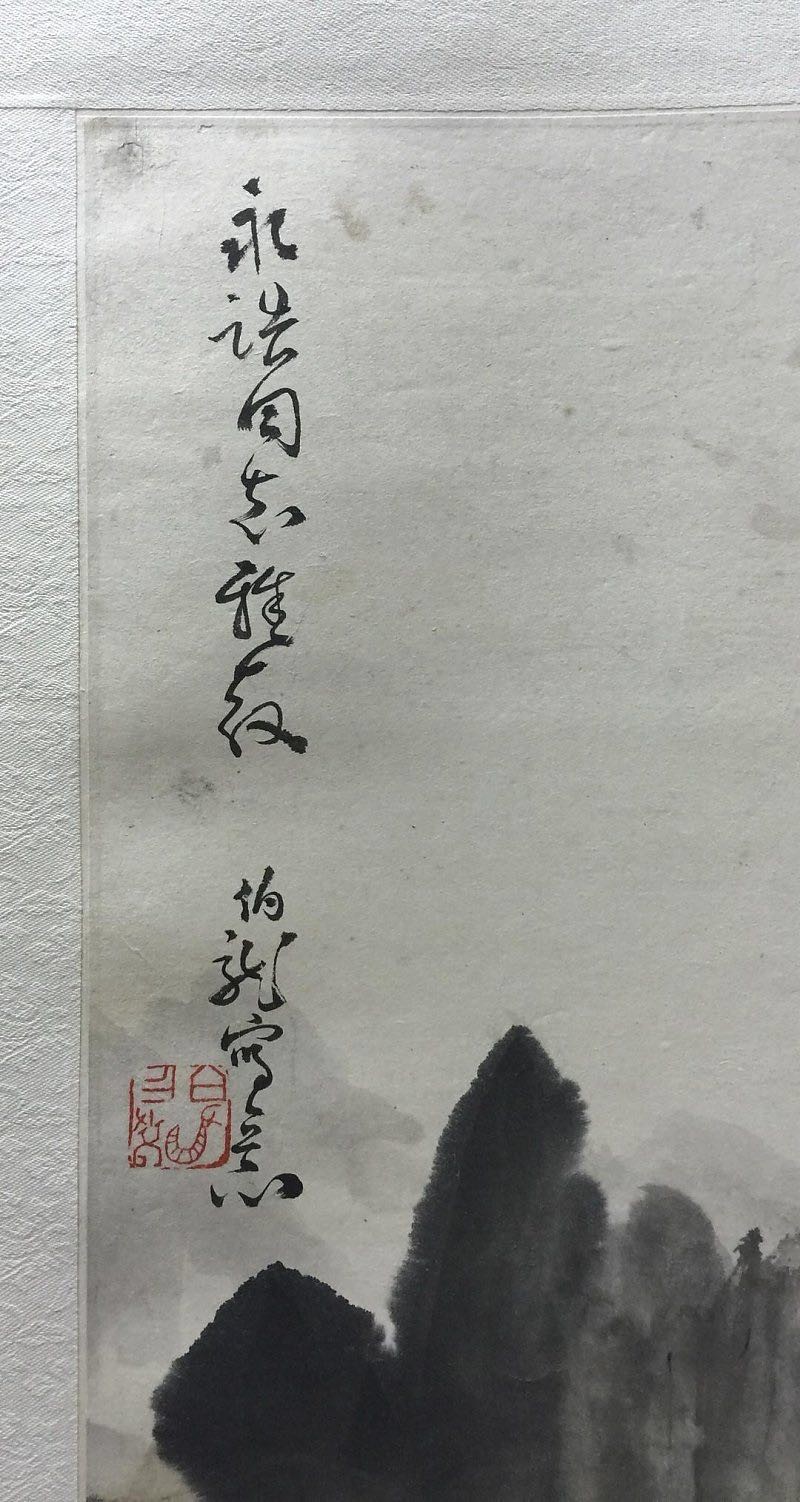 永诰同志雅教
伯龍寫意